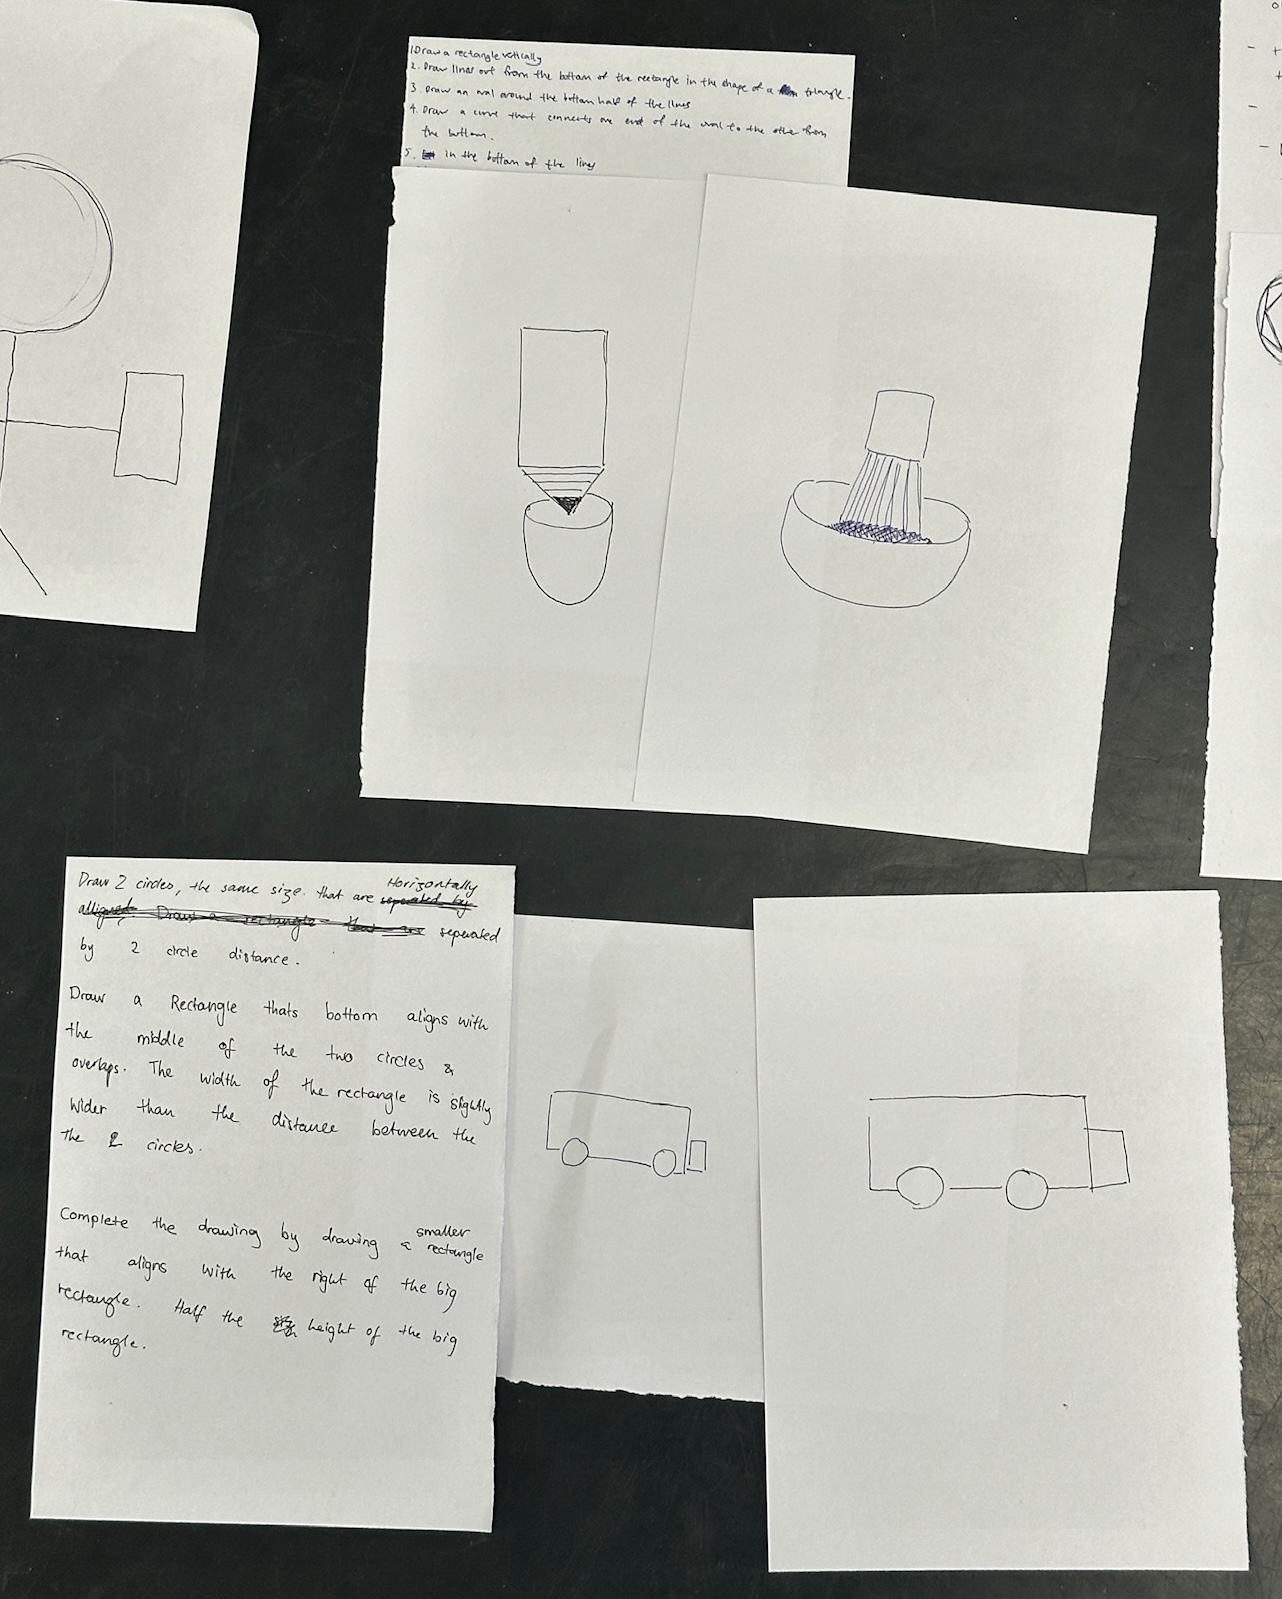 1. Draw a rectangle vertically
2. Draw lines out from the bottom of the rectangle in the shape of a triangle.
3. Draw an oval around the bottom half of the lines
4. Draw a curve that connects one end of the oval to the other from
the bottom.
5. in the bottom of the lines
Draw 2 circles, the same size. that are Horizontally
seperated
by 2 circle distance.
Draw a Rectangle thats bottom aligns with
the middle of the two circles &
overlaps. The width of the rectangle is slightly
wider than the distance between the
the 2 circles.
Complete the drawing by drawing a smaller rectangle
that aligns with the right of the big
rectangle. Half the height of the big
rectangle.